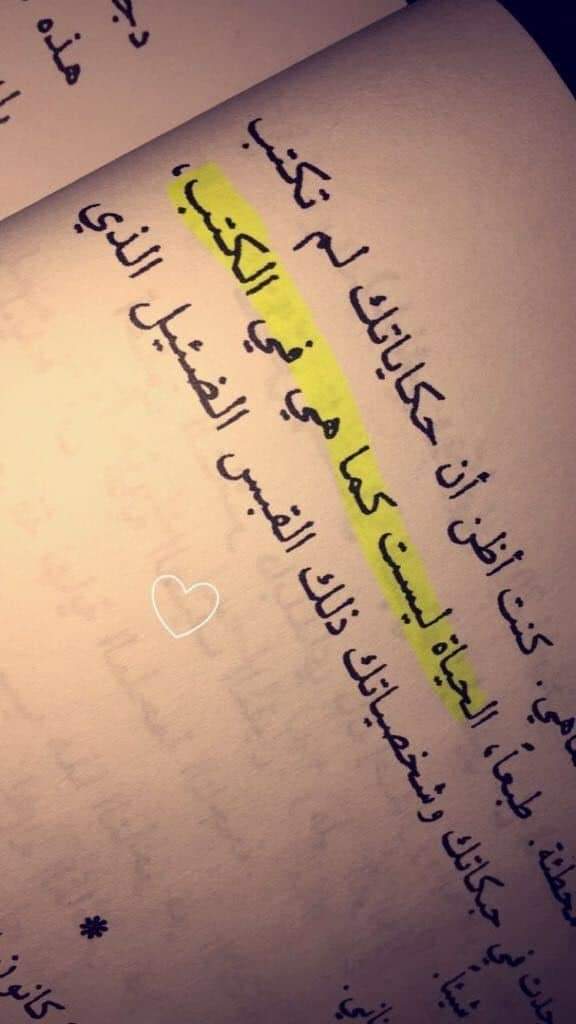 هذه
كنت أظن أن حكاياتك لم تكتب
مخطئة. طبعاً، الحياة ليست كما هي في الكتب،
في حبكاتك وشخصياتك ذلك القبس الضئيل الذي
*
كانون